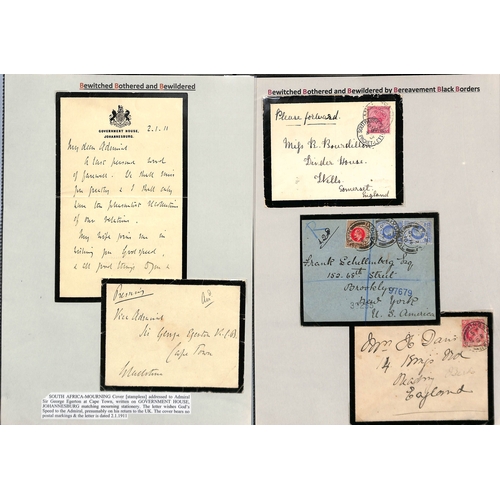 Bewitched Bothered and Bewildered
GOVERNMENT HOUSE,
JOHANNESBURG.
2.1.11
My dear Admiral
A last personal word of
farewell. We shall miss
you greatly & I shall only
have the pleasantest recollection
of our relations.
Wishing you Godspeed,
& all good things
Vice Admiral
Sir George Egerton K.C.B.
Cape Town
SOUTH AFRICA-MOURNING Cover [stampless] addressed to Admiral
Sir George Egerton at Cape Town, written on GOVERNMENT HOUSE,
JOHANNESBURG matching mourning stationery. The letter wishes God'y
Speed to the Admiral, presumably on his return to the UK. The cover bears no
postal markings & the letter is dated 2.1.1911
Bewitched Bothered and Bewildered by Bereavement Black Borders
Please forward.
Miss R. Bourdillon
House.
Wells.
Somerset.
England
Frank Schullenberg Esq
150. 68th Street
Brooklyn
97679
New York
U. S. America
H Davis
4 Rd
England